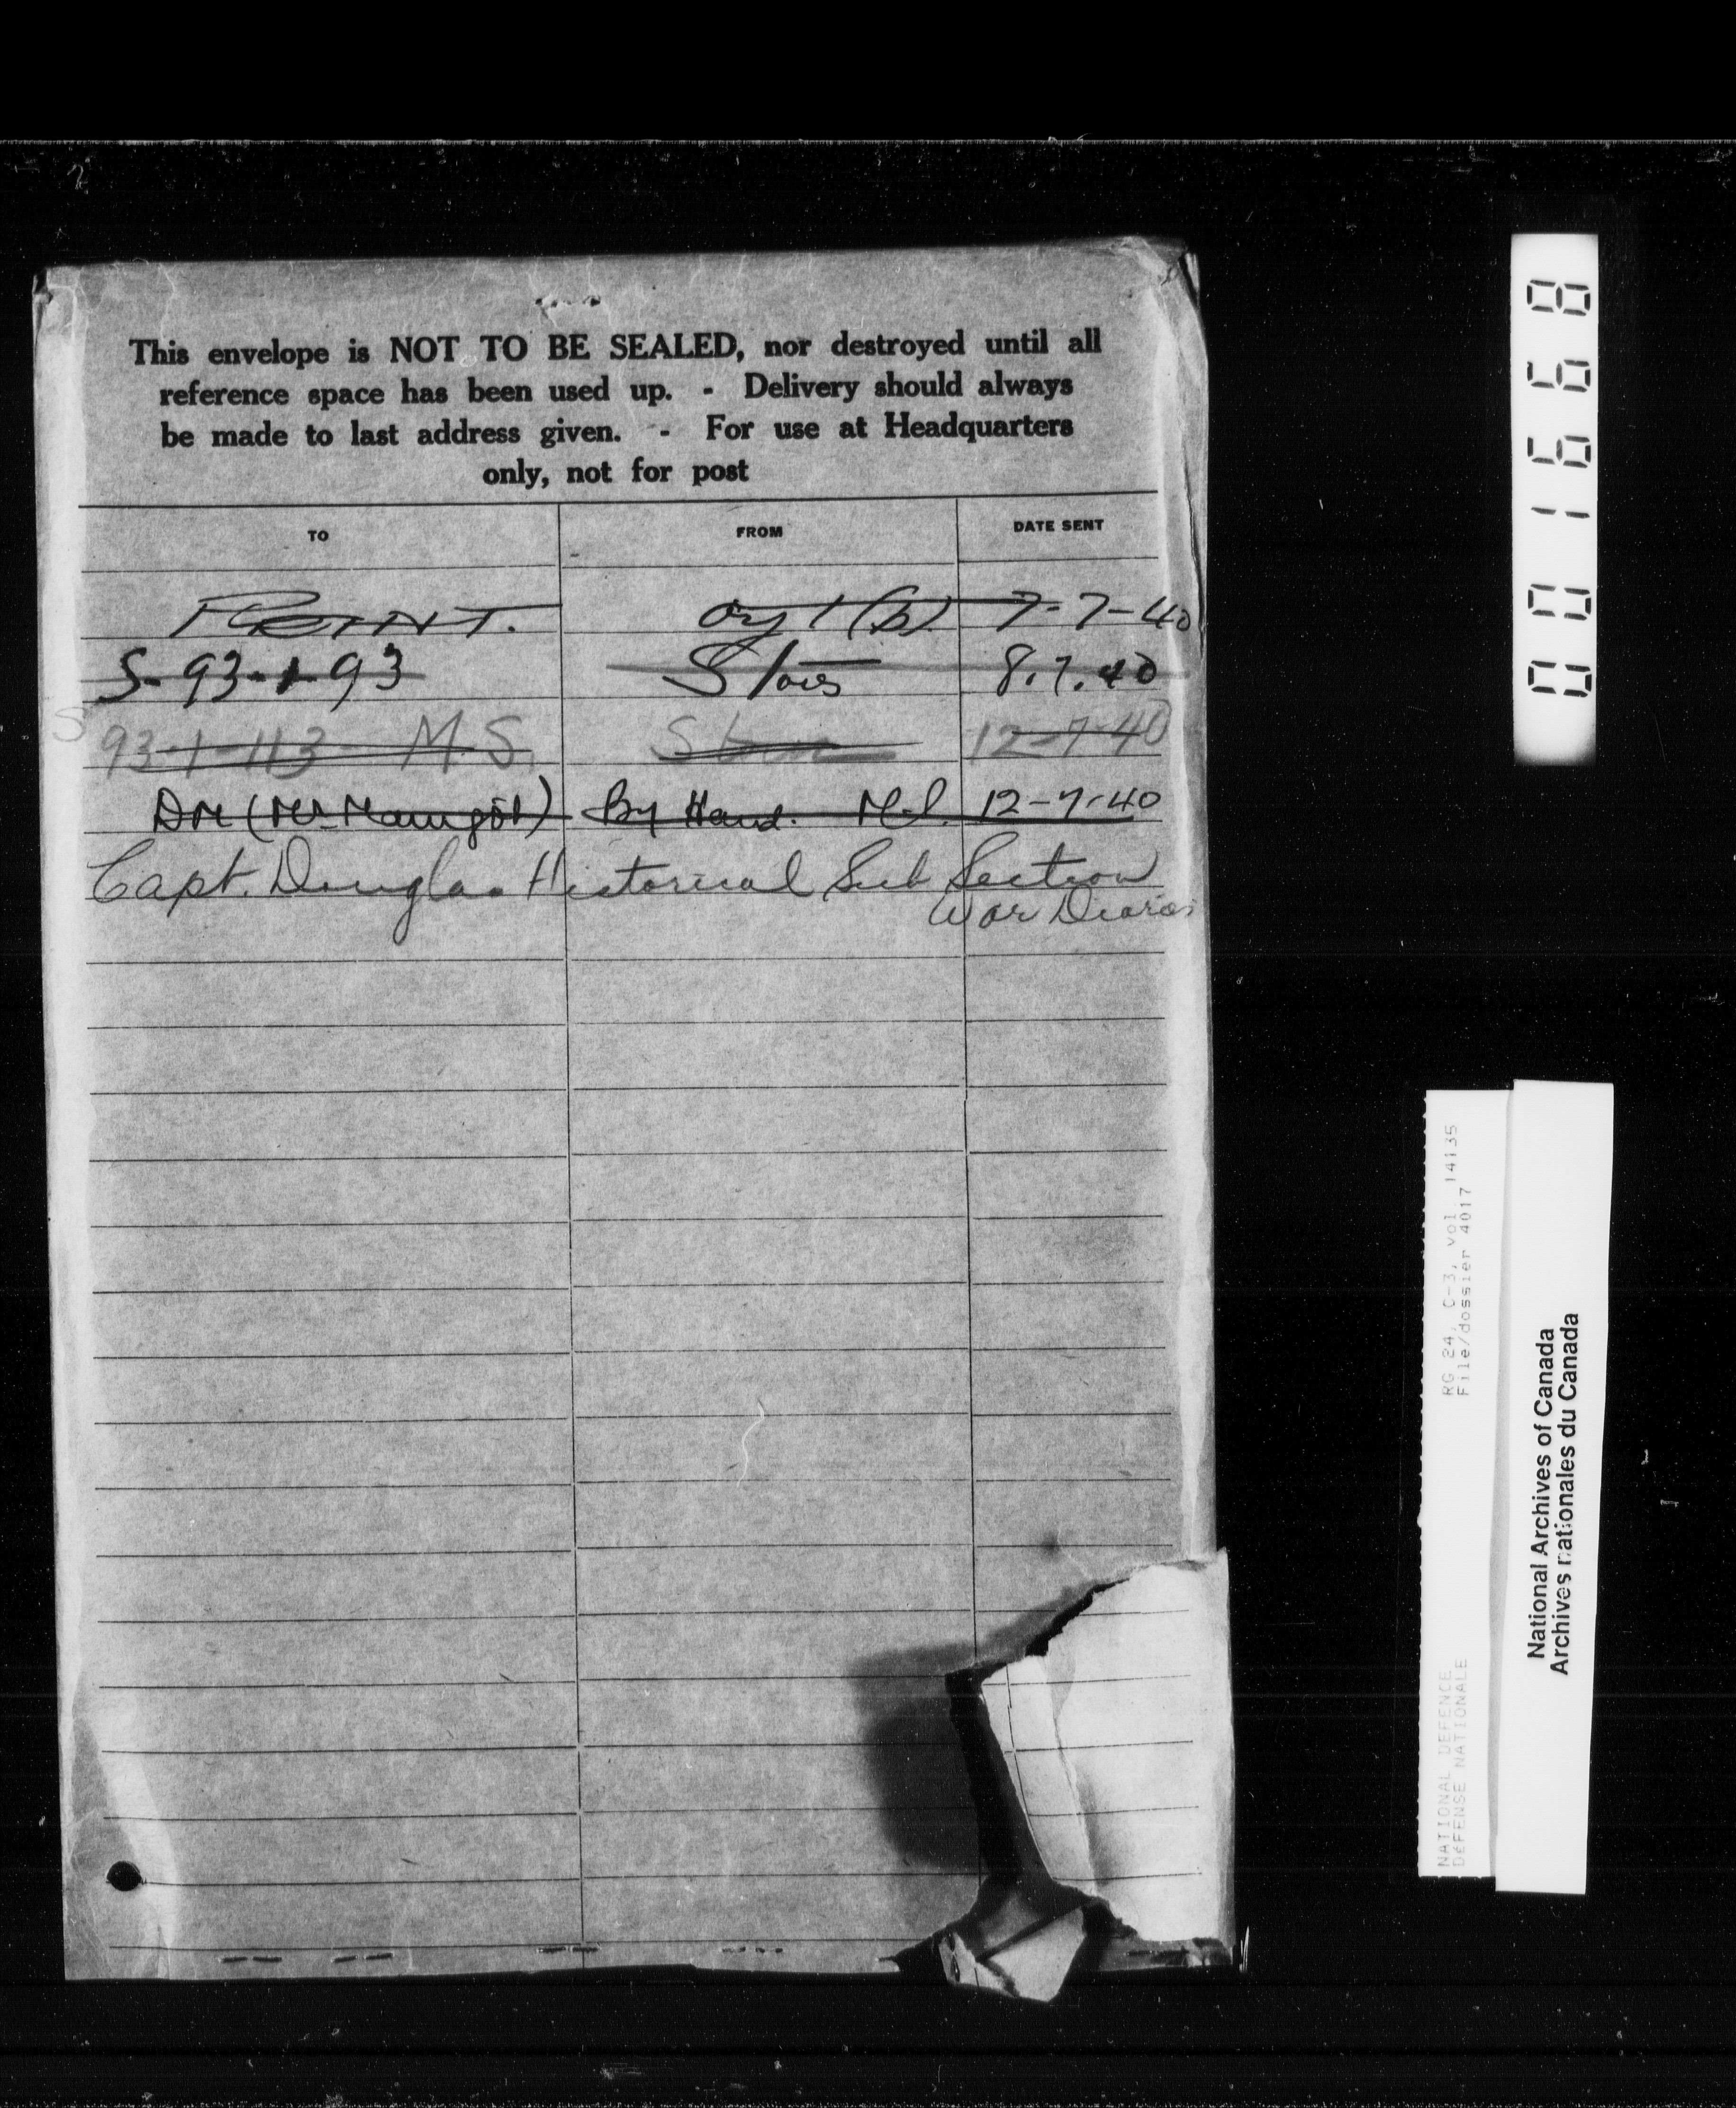 This envelope is NOT TO BE SEALED, nor destroyed until all
reference space has been used up. - Delivery should always
be made to last address given. - For use at Headquarters
only, not for post
TO FROM DATE SENT
7-7-40
S-93-1-93 8.7.40
S 93-1-113 M.S. 12-7-40
By Hand. 12-7-40
Capt. Douglas Historical Sub Section
War Diaries
001668
RG 24, C-3, vol 14135
File/dossier 4017
NATIONAL DEFENCE
DÉFENSE NATIONALE
National Archives of Canada
Archives nationales du Canada